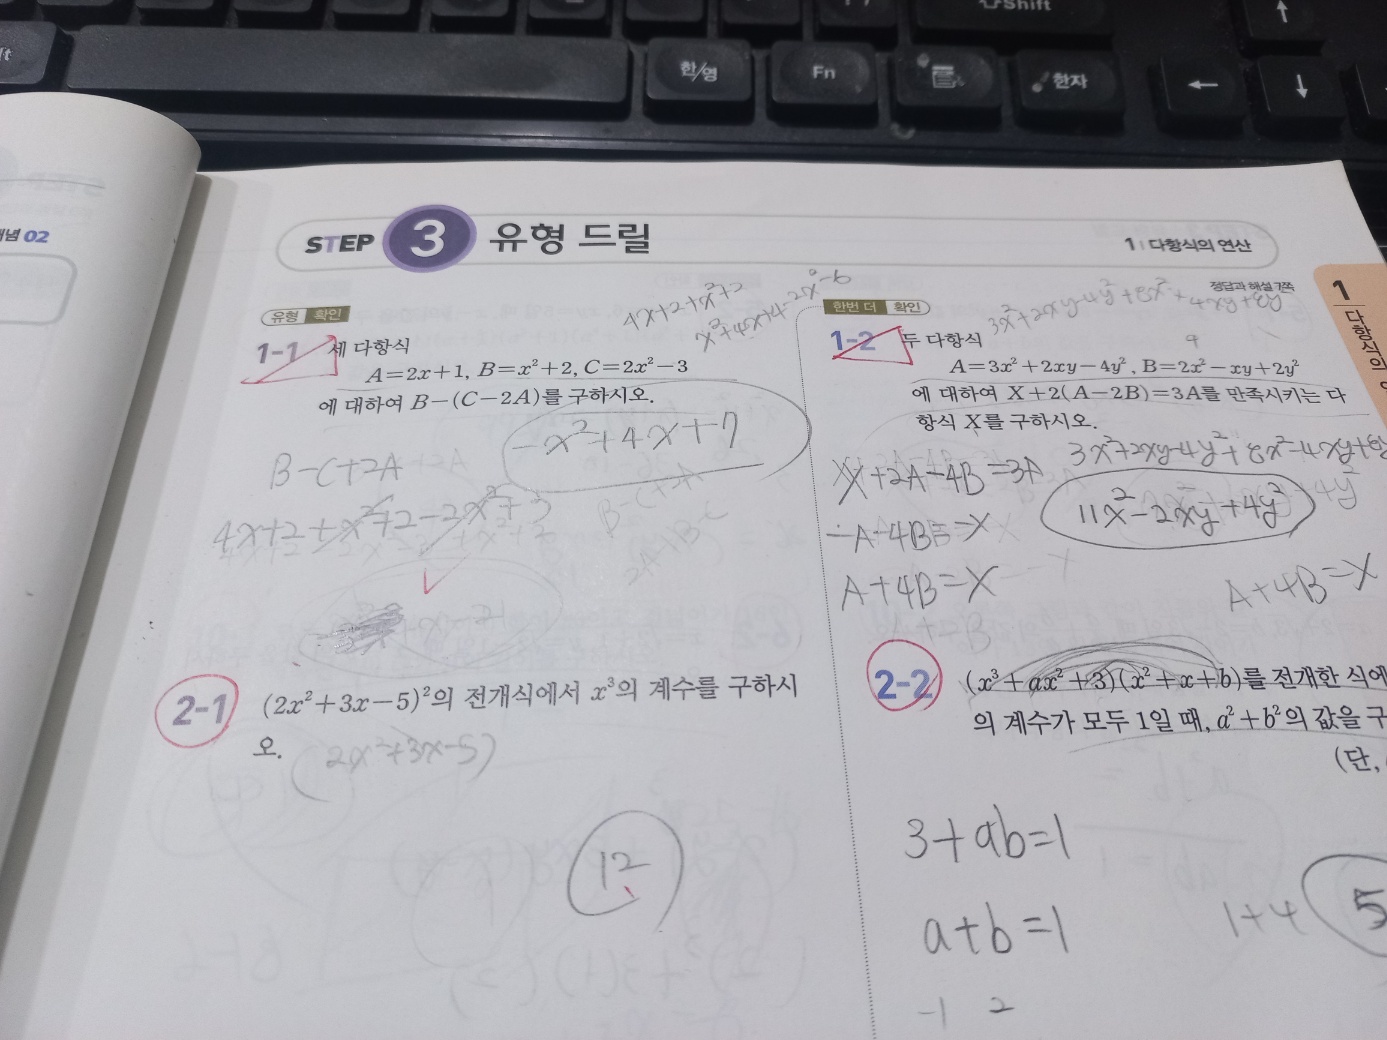 Shift
한/영
Fn
한자
개념 02
STEP 3 유형 드릴
1 | 다항식의 연산
정답과 해설 7쪽
1
다항식의
유형 확인
4x+2+x²+2
x²+4x+4-2x²-6
1-1 세 다항식
A=2x+1, B=x²+2, C=2x²-3
에 대하여 B-(C-2A)를 구하시오.
-x²+4x+7
B-C+2A
4x+2+x²+2-2x²+3
B-C+2A
2-1 (2x²+3x-5)²의 전개식에서 x³의 계수를 구하시
오.
(2x²+3x-5)
12
한번 더 확인
3x²+2xy-4y²+8x²+4xy+8y
1-2 두 다항식
A=3x²+2xy-4y², B=2x²-xy+2y²
에 대하여 X+2(A-2B)=3A를 만족시키는 다
항식 X를 구하시오.
3x²+2xy-4y²+8x²-4xy+8y
X+2A-4B=3A
11x²-2xy+4y²
-A-4B=-X
A+4B=X
A+4B=X
2-2 (x³+ax²+3)(x²+x+b)를 전개한 식에
의 계수가 모두 1일 때, a²+b²의 값을 구
(단,
3+ab=1
a+b=1
1+4
5
-1 2